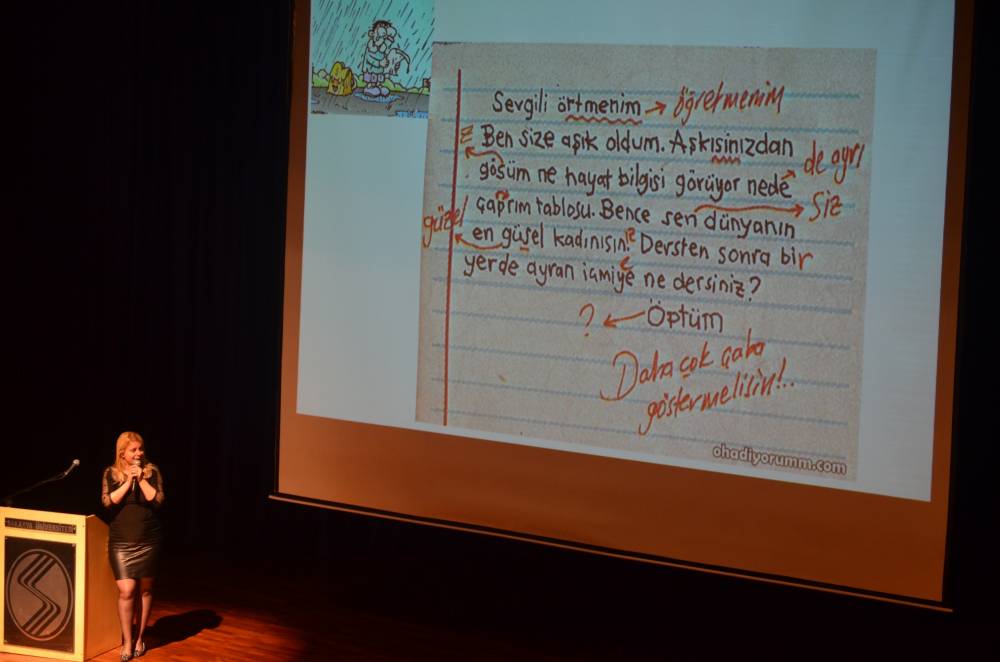 Sevgili örtmenim → öğretmenim
z Ben size aşık oldum. Aşkısinızdan de ayrı
gösüm ne hayat bilgisi görüyor nede
çaprım tablosu. Bence sen dünyanın siz
güzel en güsel kadınısın! Dersten sonra bir
yerde ayran iamiye ne dersiniz?
? ← Öptüm
Daha çok çaba
göstermelisin!..
ohadiyorumm.com
SAKARYA ÜNİVERSİTESİ